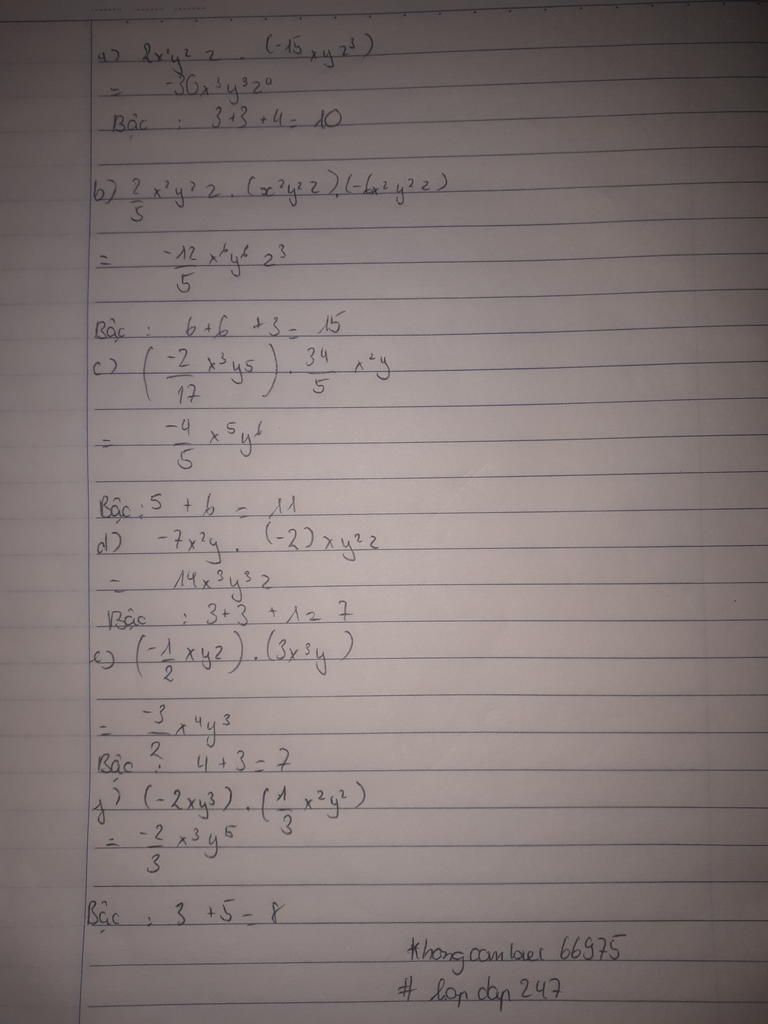 a) 2x²y²z . (-15xyz³)
= -30x³y³z⁴
Bậc : 3+3+4 = 10
b) 2/5 x²y²z . (x²y²z).(-6x²y²z)
= -12/5 x⁶y⁶z³
Bậc : 6+6+3 = 15
c) (-2/17 x³y5) . 34/5 x²y
= -4/5 x⁵y⁶
Bậc : 5 + 6 = 11
d) -7x²y . (-2)xy²z
= 14x³y³z
Bậc : 3+3+1 = 7
e) (-1/2 xy2) . (3x³y)
= -3/2 x⁴y³
Bậc : 4+3 = 7
f) (-2xy³) . (1/3 x²y²)
= -2/3 x³y⁵
Bậc : 3 +5 = 8
66975
# 247